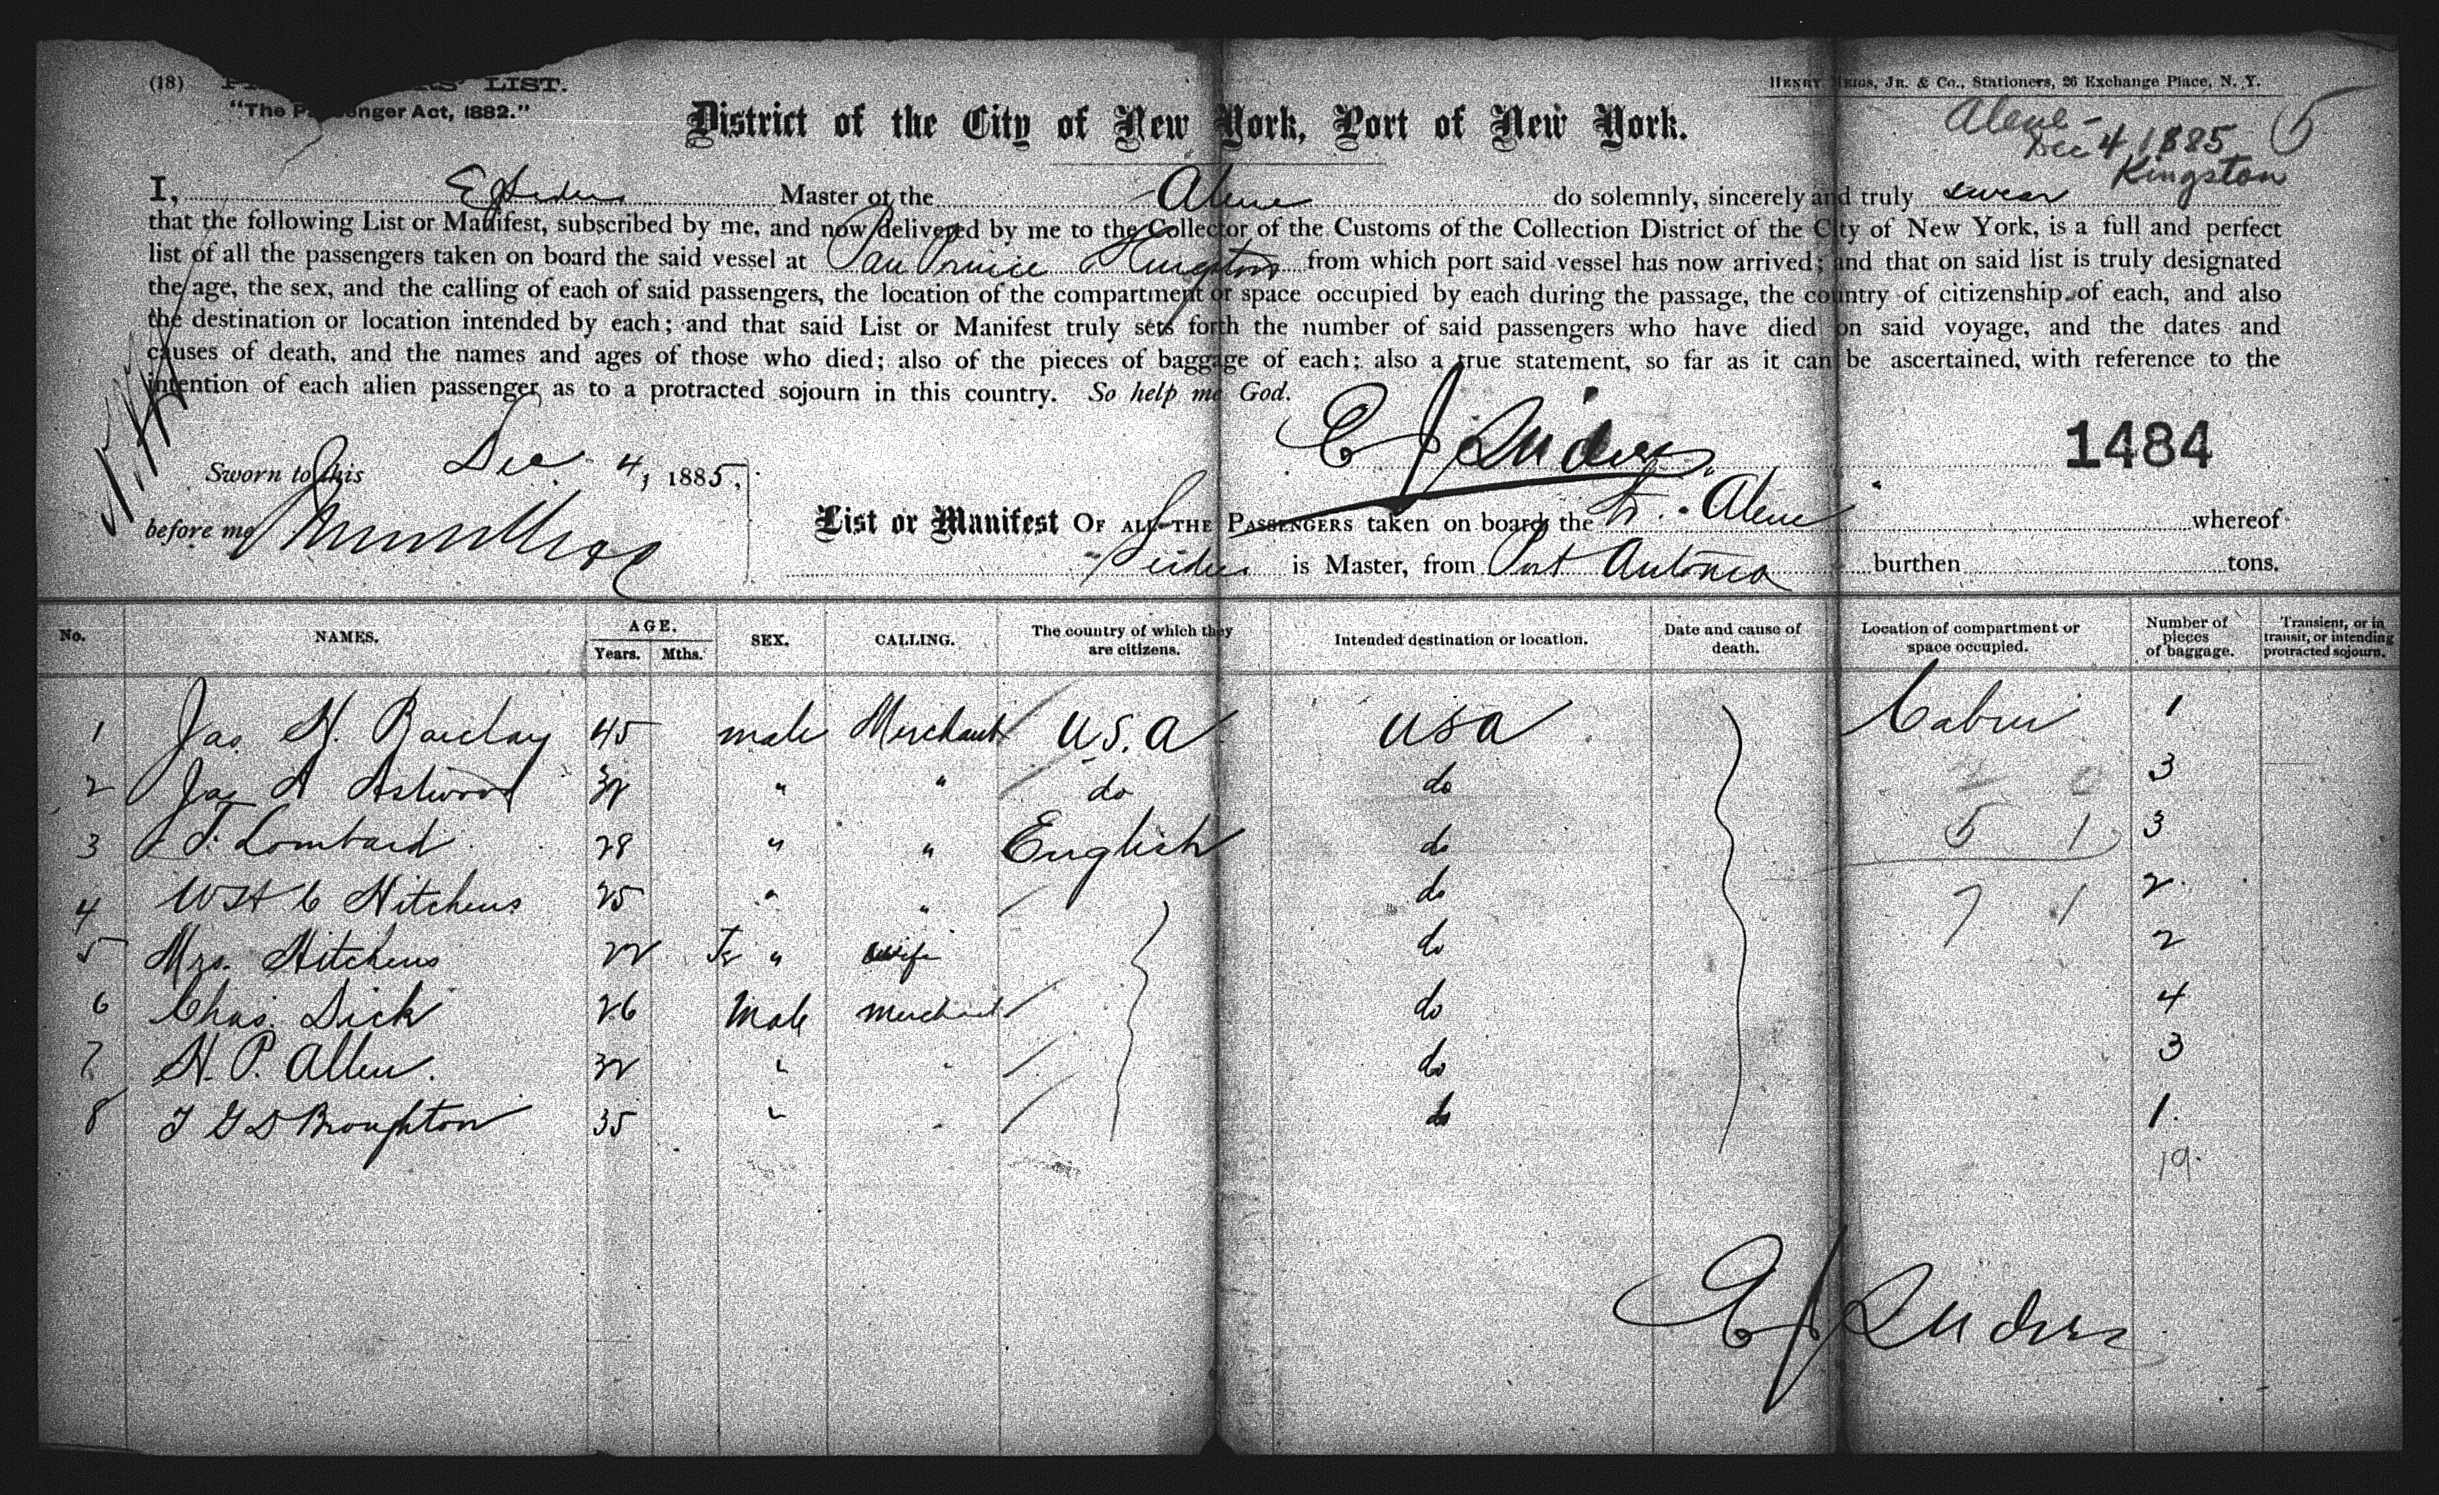 (18) LIST.
HENRY MEIGS, JR. & Co., Stationers, 26 Exchange Place, N. Y.
"The Passenger Act, 1882."
District of the City of New York, Port of New York.
Alene - 5
Dec 4 1885
Kingston
I, Master of the Alene do solemnly, sincerely and truly swear
that the following List or Manifest, subscribed by me, and now delivered by me to the Collector of the Customs of the Collection District of the City of New York, is a full and perfect
list of all the passengers taken on board the said vessel at Kingston from which port said vessel has now arrived; and that on said list is truly designated
the age, the sex, and the calling of each of said passengers, the location of the compartment or space occupied by each during the passage, the country of citizenship of each, and also
the destination or location intended by each; and that said List or Manifest truly sets forth the number of said passengers who have died on said voyage, and the dates and
causes of death, and the names and ages of those who died; also of the pieces of baggage of each; also a true statement, so far as it can be ascertained, with reference to the
intention of each alien passenger as to a protracted sojourn in this country. So help me God.
E J Luders
1484
Sworn to this Dec. 4, 1885,
before me
List or Manifest OF ALL THE PASSENGERS taken on board the Alene whereof
Luders is Master, from Port Antonio burthen tons.
No. NAMES. AGE. Years. Mths. SEX. CALLING. The country of which they are citizens. Intended destination or location. Date and cause of death. Location of compartment or space occupied. Number of pieces of baggage. Transient, or in transit, or intending protracted sojourn.
1 Jas. H. Barclay 45 male Merchant U.S.A USA Cabin 1
2 Jas A Astwood 32 " " do do 3
3 J. Lombard 28 " " English do 5 1 3
4 W H C Hitchens 25 " " do 7 1 2
5 Mrs. Hitchens 22 Fe " wife do 2
6 Chas. Dick 26 Male Merchant do 4
7 H. P. Allen. 32 " " do 3
8 T G D Broughton 35 " " do 1
19.
E J Luders